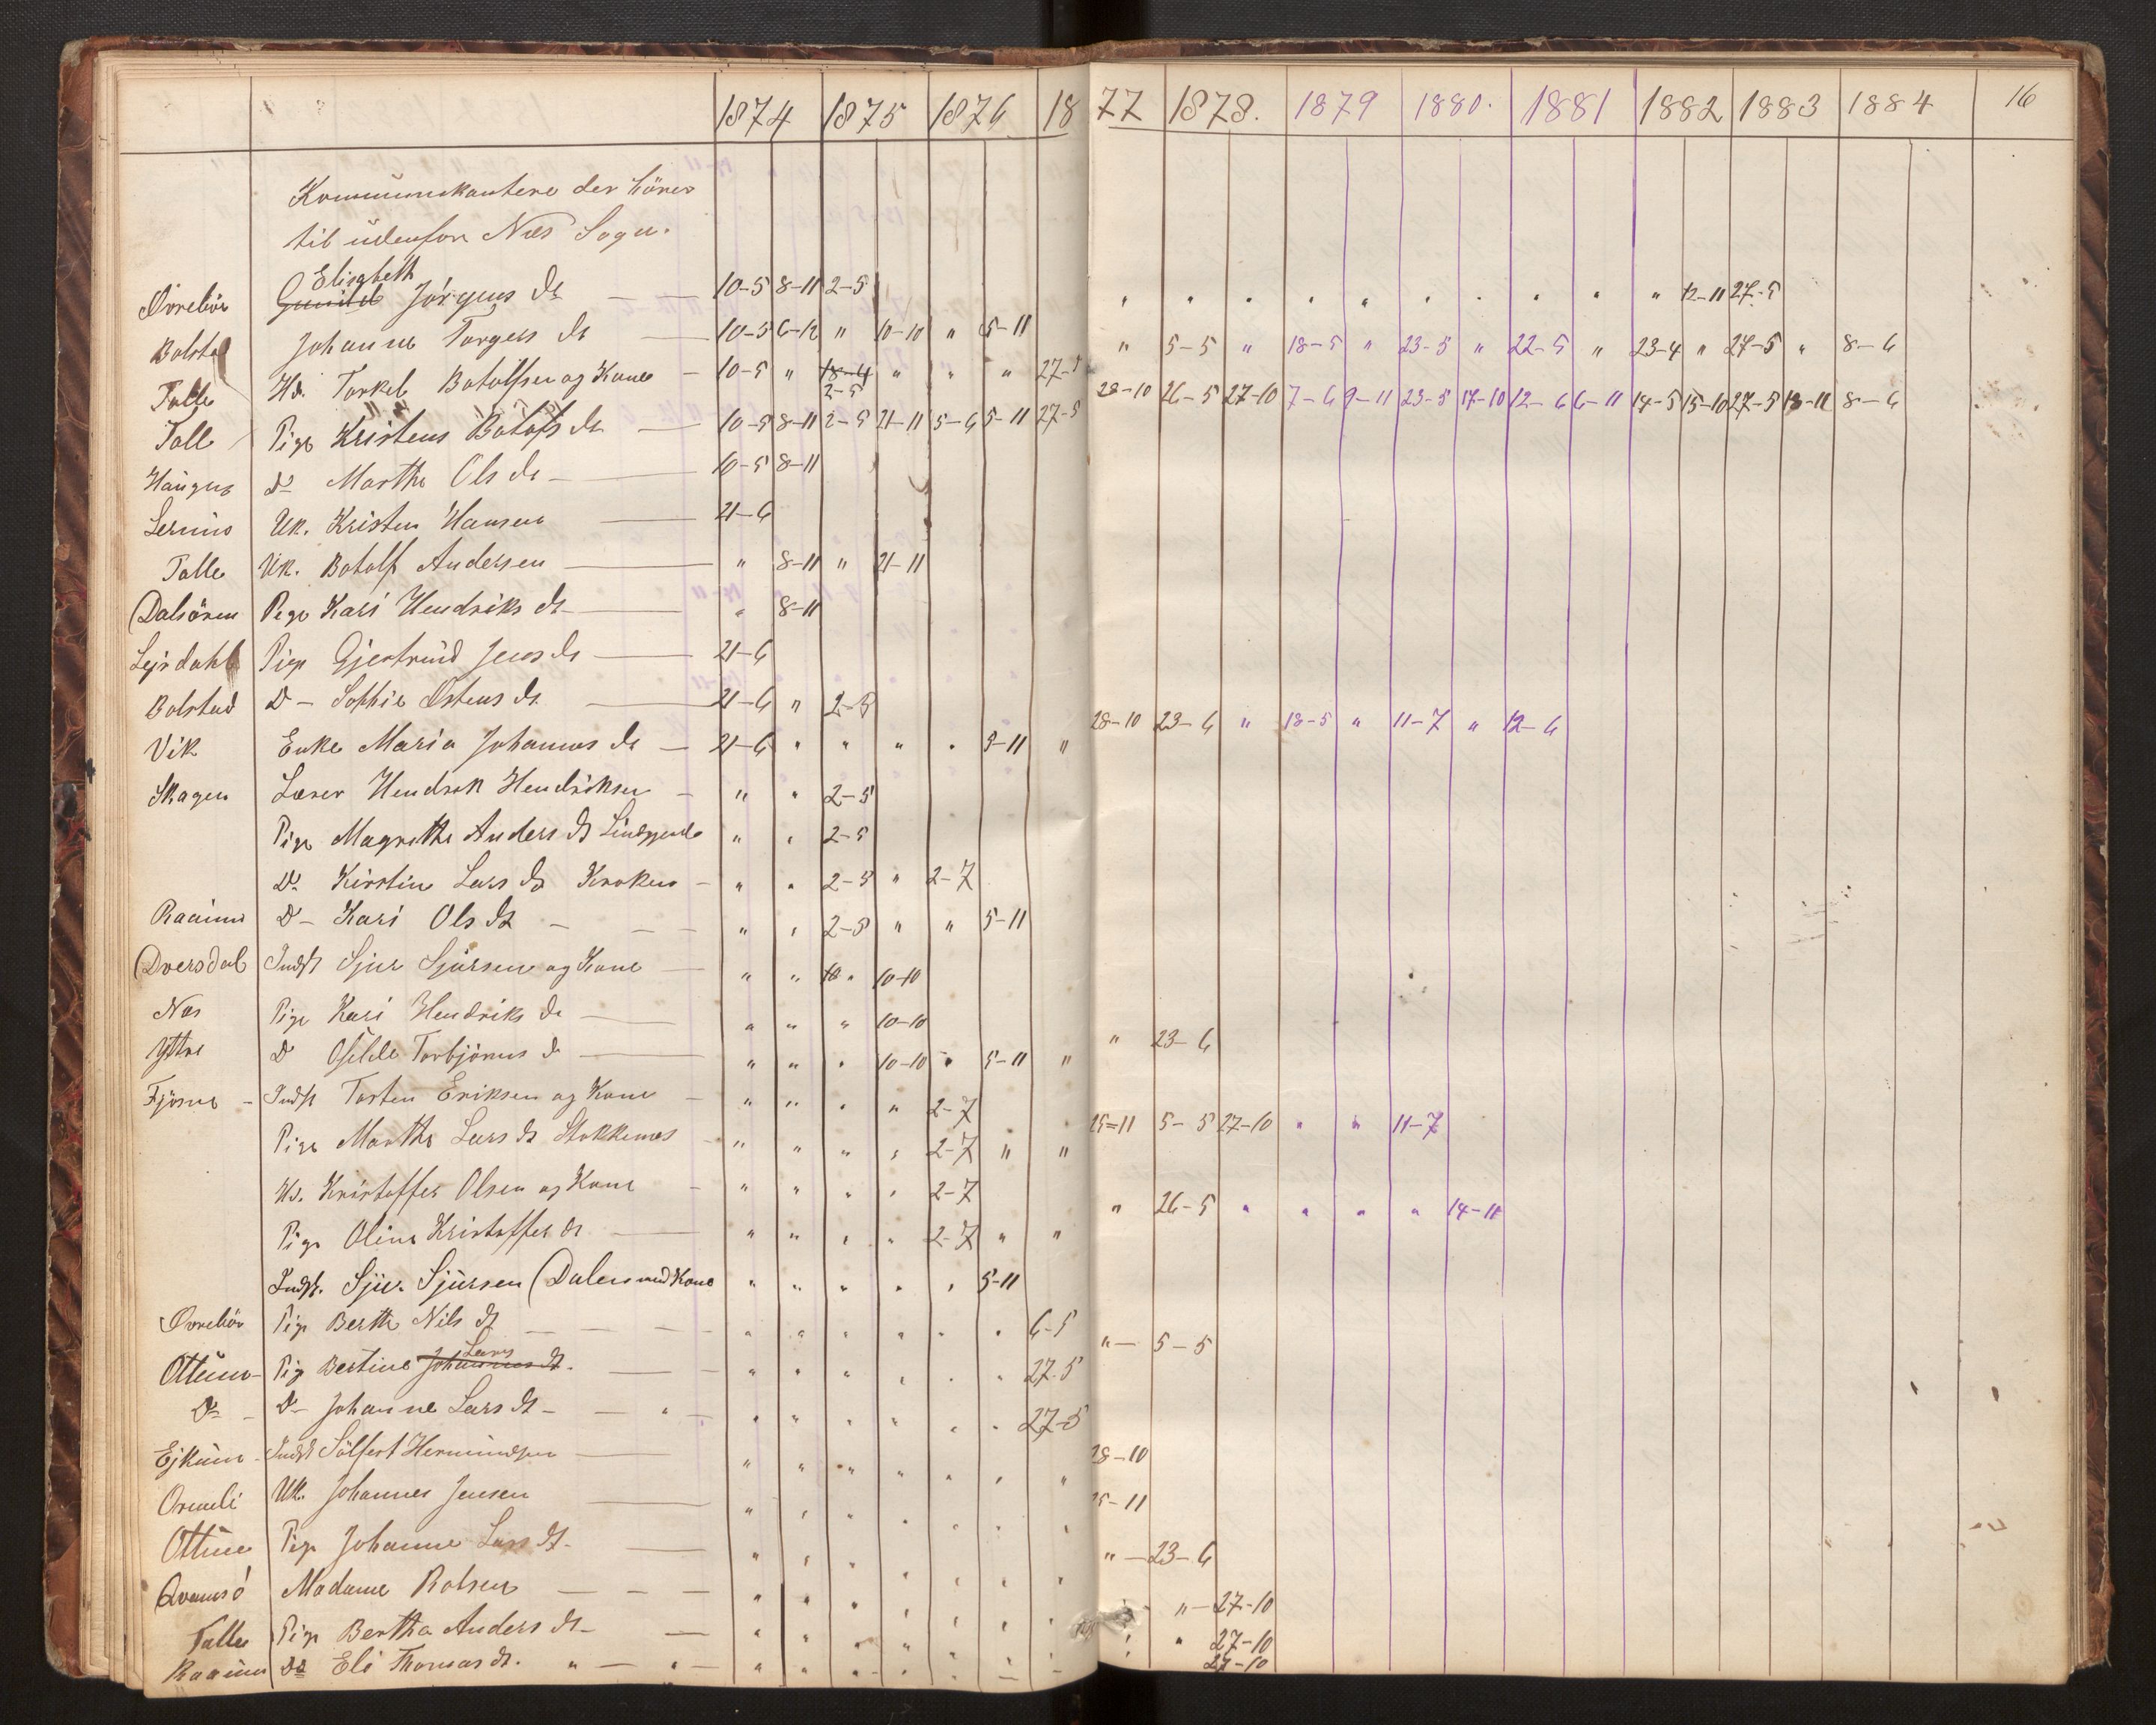 1874 1875 1876 1877 1878. 1879 1880. 1881 1882 1883 1884 16
Kommunikantere der hörer
til udenfor Næs Sogn.
Elisabeth
Øvrebör Gunild Jörgens dr — — 10-5 8-11 2-5 " " " " " " " " " " 12-11 27-5
Bolstad Johanne Torgers dr — 10-5 6-12 " 10-10 " 5-11 " 5-5 " 18-5 " 23-5 " 22-5 " 23-4 " 27-5 " 8-6
Talle Hd. Torkel Botolfsen og Kone — 10-5 " 18-4 " " " 27-5 28-10 26-5 27-10 7-6 9-11 23-5 17-10 12-6 6-11 14-5 15-10 27-5 18-11 8-6
2-5
Talle Pige Kristens Botofs dr — 10-5 8-11 2-5 21-11 5-6 5-11 27-5
Haugen Do Marthe Ols dr — 10-5 8-11
Uk. Kristen Hansen — 21-6
Talle Uk. Botolf Andersen — " 8-11 " 21-11
Dalsören Pige Kari Hendriks dr — " 8-11
Lejrdahl Pige Gjertrud Jens dr — 21-6
Bolstad D — Sophie Østens dr — 21-6 " 2-5
Vik Enke Maria Johannes dr — 21-6 " " " " 5-11 " 28-10 23-6 " 18-5 " 11-7 " 12-6
Skagen Lærer Hendrik Hendriksen — " " 2-5
Pige Magrethe Anders dr " " 2-5
Do Kirstine Lars dr Kroken — " " 2-5 " 2-7
Raaum D — Kari Ols dr — — — " " 2-5 " " 5-11
Dversdal Indst Sjur Sjursen og Kone — " " 10 " 10-10
Næs Pige Kari Hendriks dr — " " " 10-10
Yttri D Torbjörns d — " " " 10-10 " 5-11 " " 23-6
Fjösne — Indst Torsten Eriksen og Kone — " " " " 2-7
Pige Marthe Lars dr Stokkenæs — " " " " 2-7 " " 25-11 5-5 27-10 " " 11-7
Hd. Kristoffer Olsen og Kone — " " " " 2-7
Pige Oline Kristoffer dr — " " " " 2-7 " " " 26-5 " " " " 14-11
Indst. Sjur Sjursen (Dalen med Kone " " " " " 5-11
Øvrebör Pige Berthe Nils dr — — — " " " " " " 6-5 " — 5-5
Lars
Ottum — Pig Bertine Johannes dr. — — " " " " " " 27-5
Do — D — Johanne Lars dr — — " — " " " " " " 27-5
Ejkum — Indst Sölfest Hermundsen — " " " " " " " 28-10
Ormeli Uk. Johannes Jensen — " " " " " " " 25-11
Ottum Pige Johanne Lars dr — — " " " " " " " " — 23-6
Qvamsö Madame Rolsen — — — " " " " " " " " — 27-10
Talle Pige Bertha Anders dr — — " " " " " " " " " 27-10
Raaum Do Eli Thomas dr. " — " — " " " " " " " " 27-10